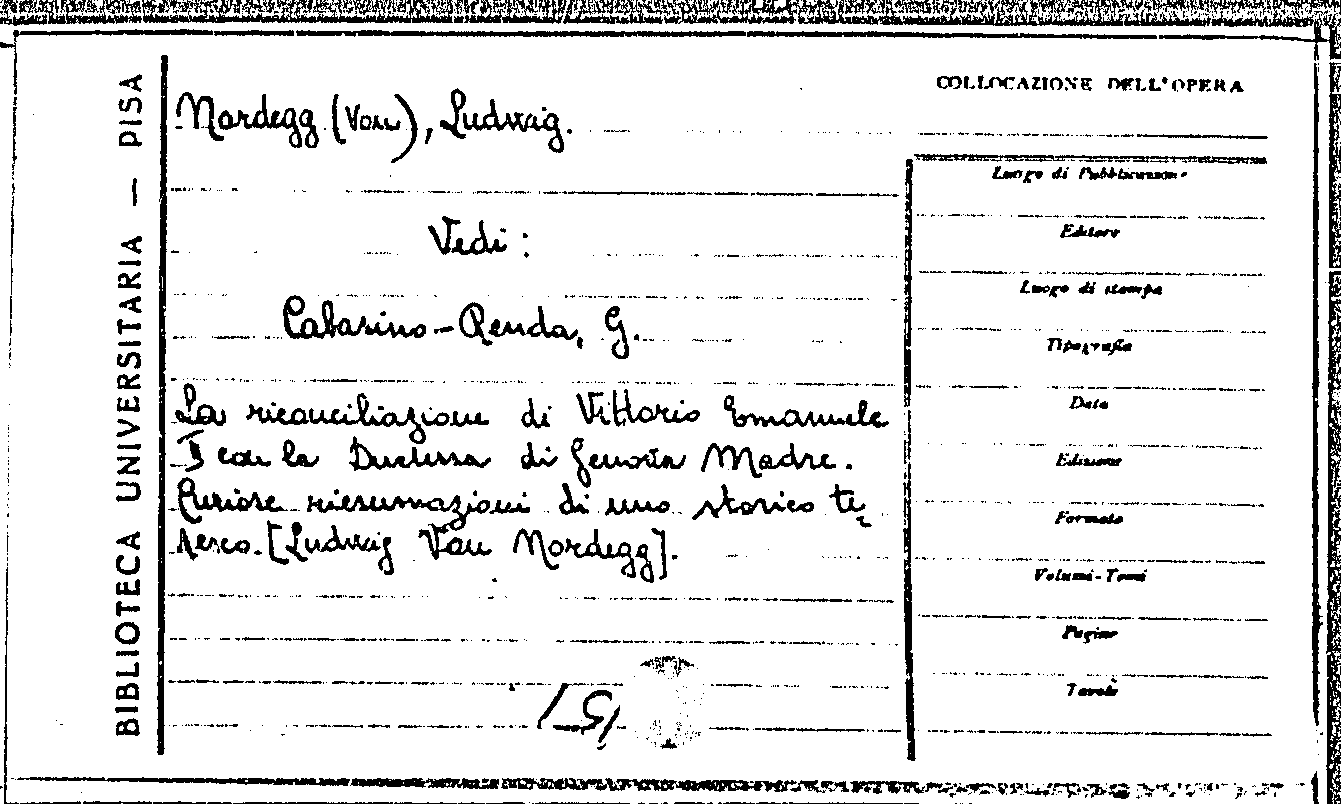 BIBLIOTECA UNIVERSITARIA — PISA
Nordegg (Von), Ludwig.
Vedi:
Cabasino-Renda, G.
La riconciliazione di Vittorio Emanuele
II con la Duchessa di Genova Madre.
Curiose riesumazioni di uno storico te-
desco. [Ludwig Von Nordegg].
COLLOCAZIONE DELL'OPERA
Luogo di Pubblicazione
Editore
Luogo di stampa
Tipografia
Data
Edizione
Formato
Volumi-Tomi
Pagine
Tavole